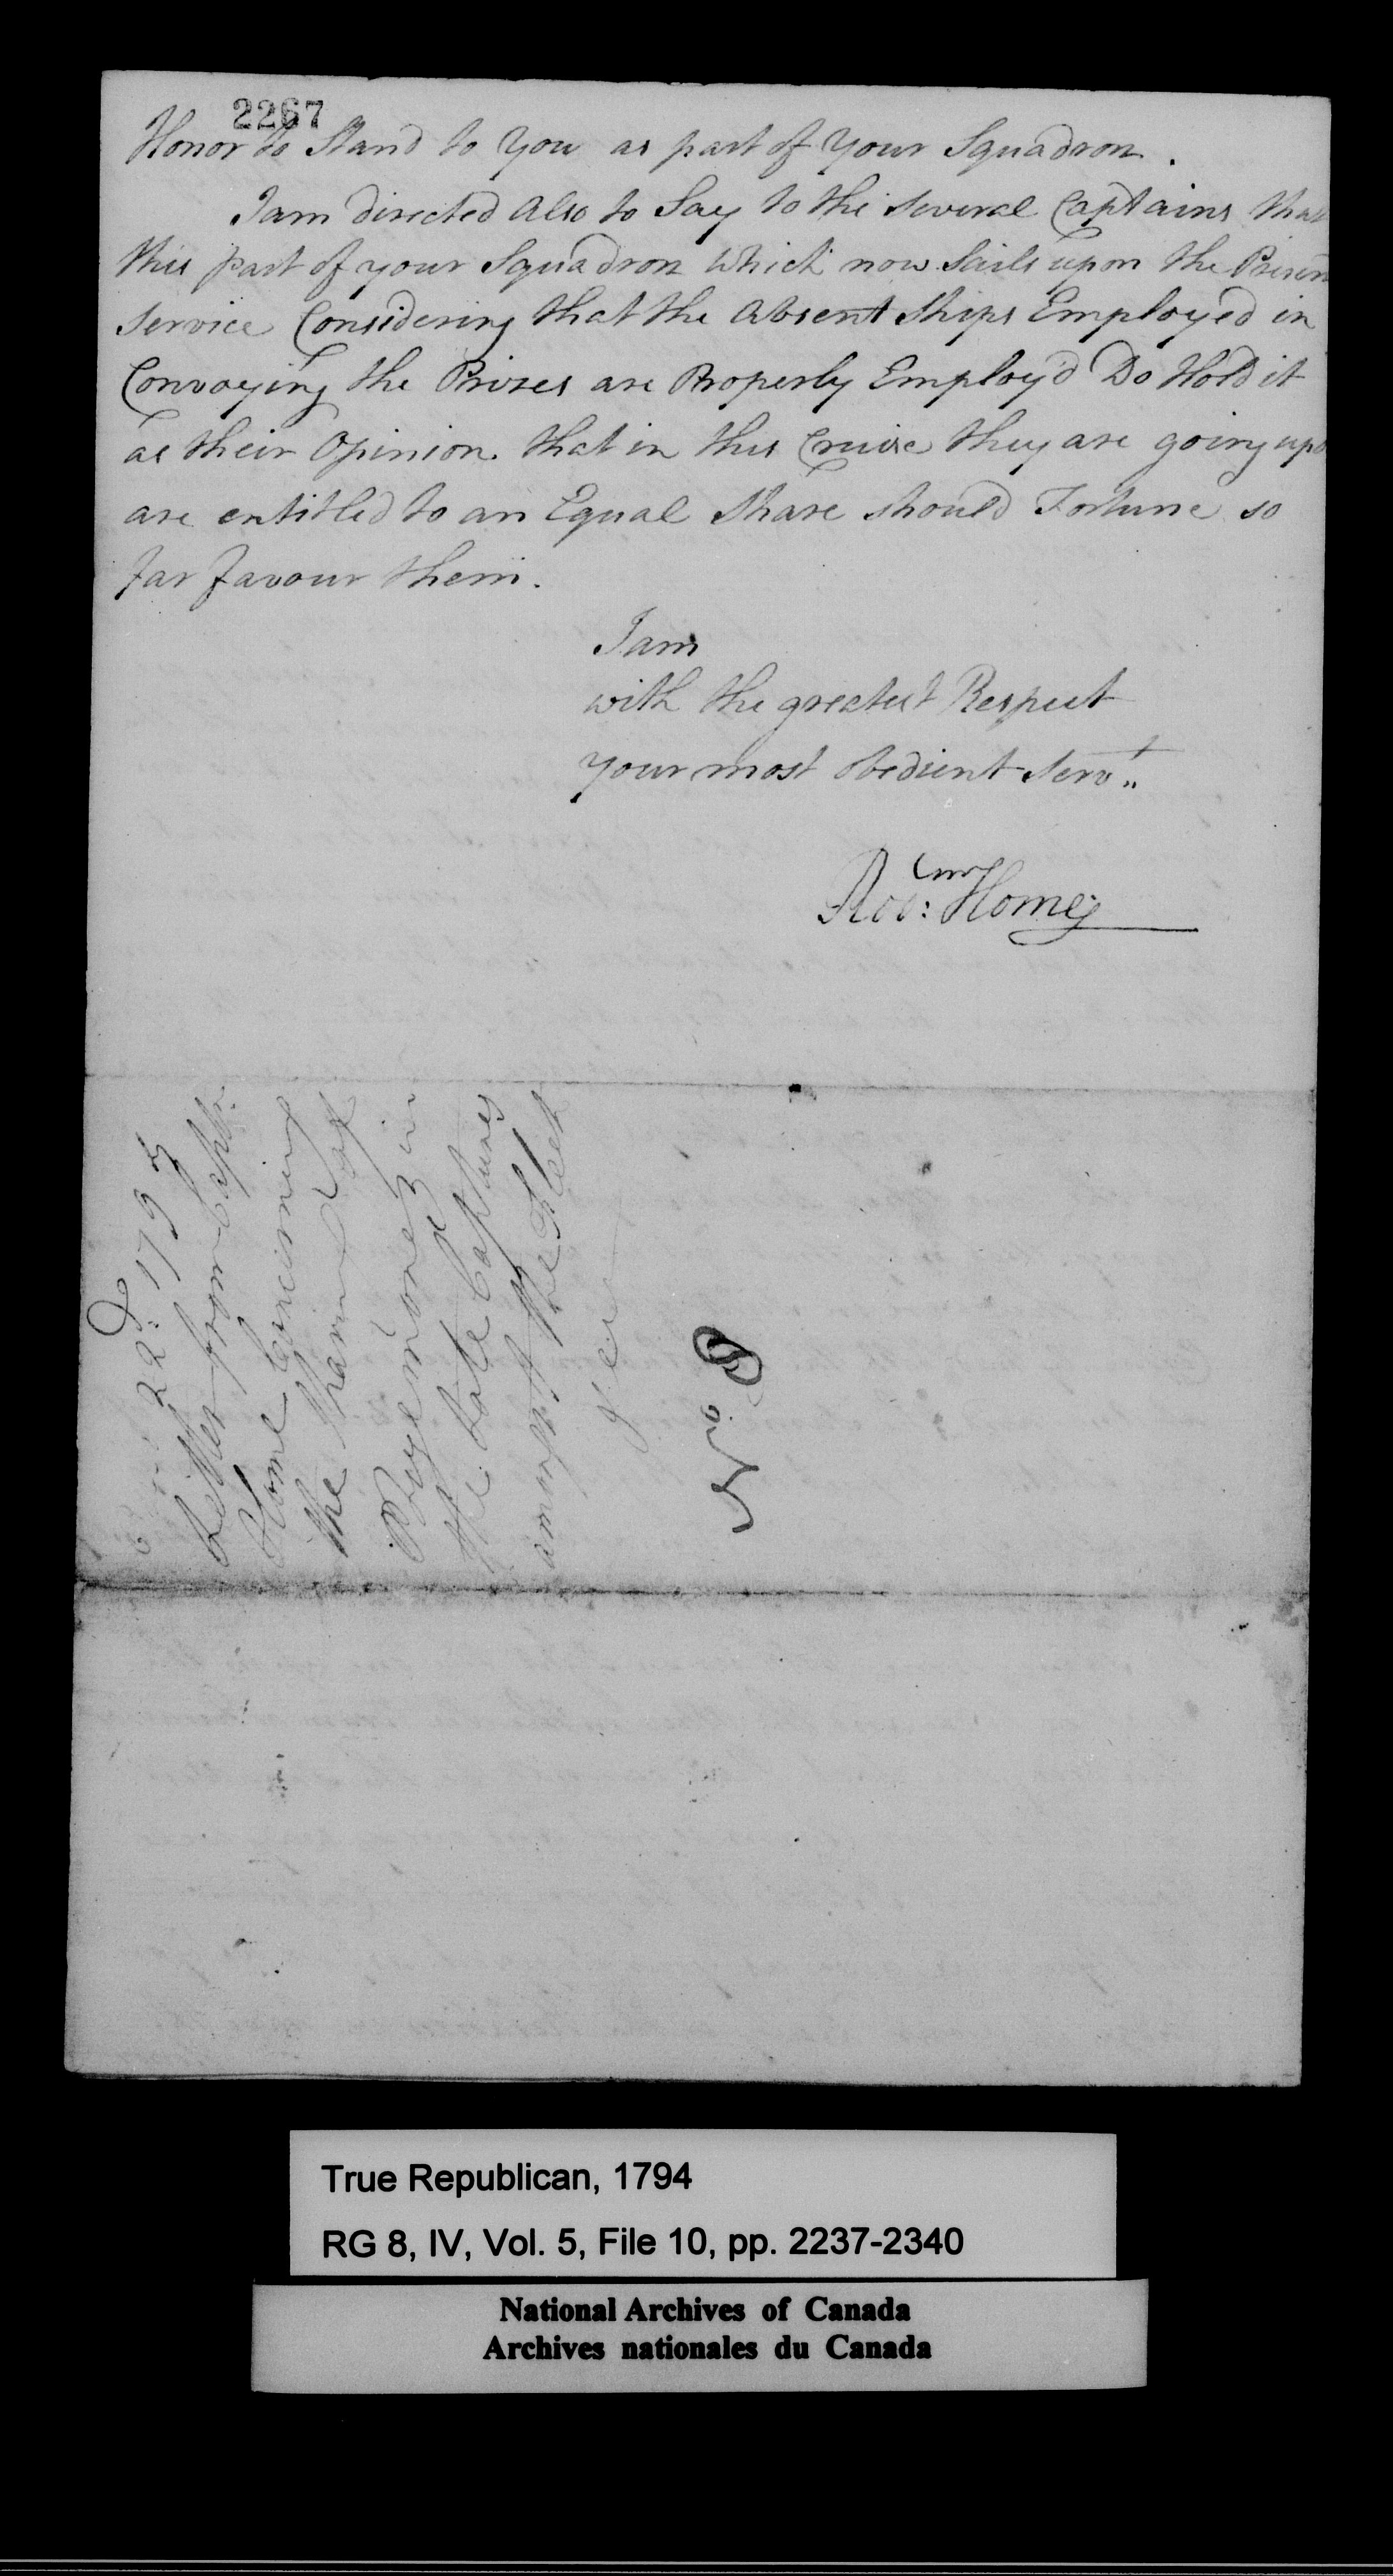 2267
Honor to Stand to You as part of Your Squadron.
I am directed Also to Say to the several Captains that
this part of your Squadron which now Sails upon the
Service Considering that the Absent Ships Employed in
Convoying the Prizes are Properly Employ'd Do Hold it
as their Opinion. that in this Cruise they are going upo
are entitled to an Equal Share should Fortune so
far favour them.
I am
with the greatest Respect
your most obedient Servt
Home
22d 1795
Letter from Captn.
Home Concerning
the Sharing of
Prize money in
the late Captures
amongst the Fleet
No. 8
True Republican, 1794
RG 8, IV, Vol. 5, File 10, pp. 2237-2340
National Archives of Canada
Archives nationales du Canada